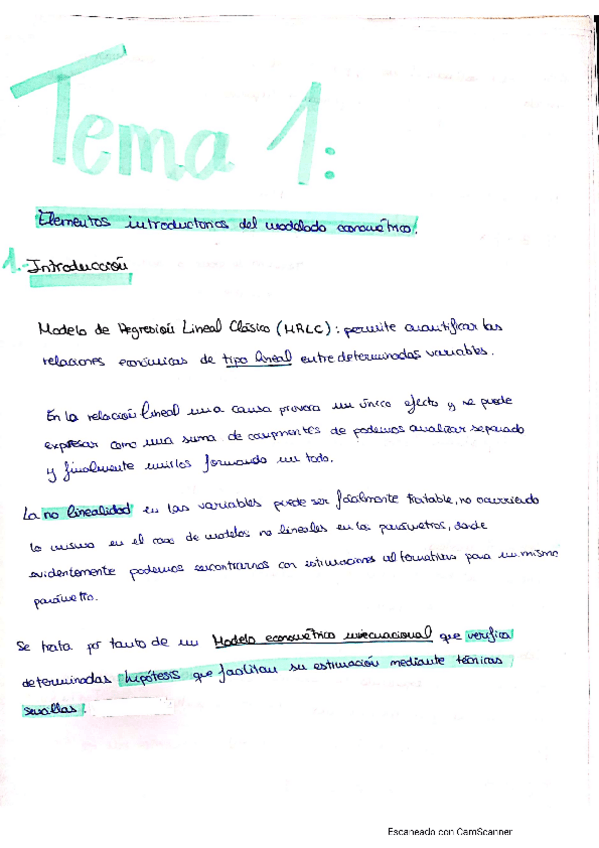 Tema 1:
Elementos introductorios del modelado econométrico.
1. Introducción
Modelo de Regresión Lineal Clásico (MRLC): permite cuantificar las
relaciones económicas de tipo lineal entre determinadas variables.
En la relación lineal una causa provoca un único efecto y se puede
expresar como una suma de componentes de podemos analizar separado
y finalmente unirlos formando un todo.
La no linealidad en las variables puede ser fácilmente tratable, no ocurriendo
lo mismo en el caso de modelos no lineales en los parámetros, donde
evidentemente podemos encontrarnos con estimaciones alternativas para un mismo
parámetro.
Se trata por tanto de un Modelo econométrico uniecuacional que verifica
determinadas hipótesis que facilitan su estimación mediante técnicas
sencillas.
Escaneado con CamScanner